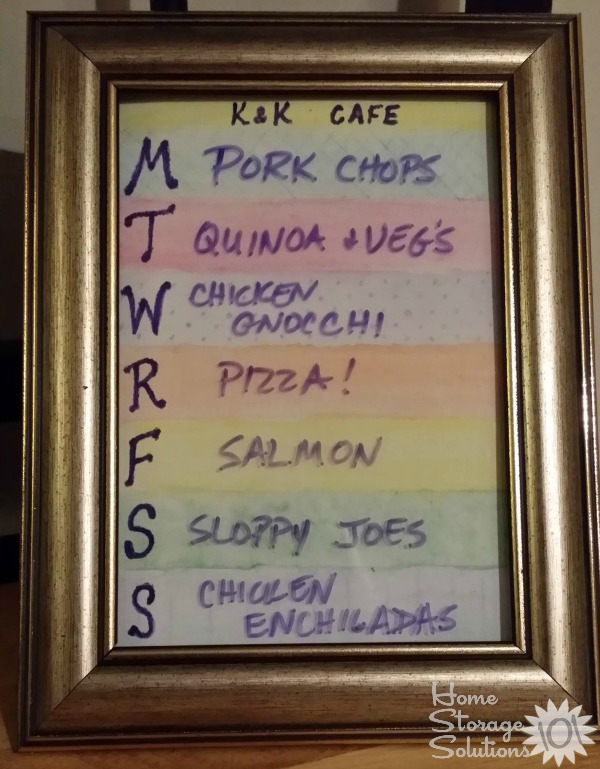 K & K CAFE
M PORK CHOPS
T QUINOA & VEG'S
W CHICKEN
GNOCCHI
R PIZZA!
F SALMON
S SLOPPY JOES
S CHICKEN
ENCHILADAS
Home
Storage
Solutions 101